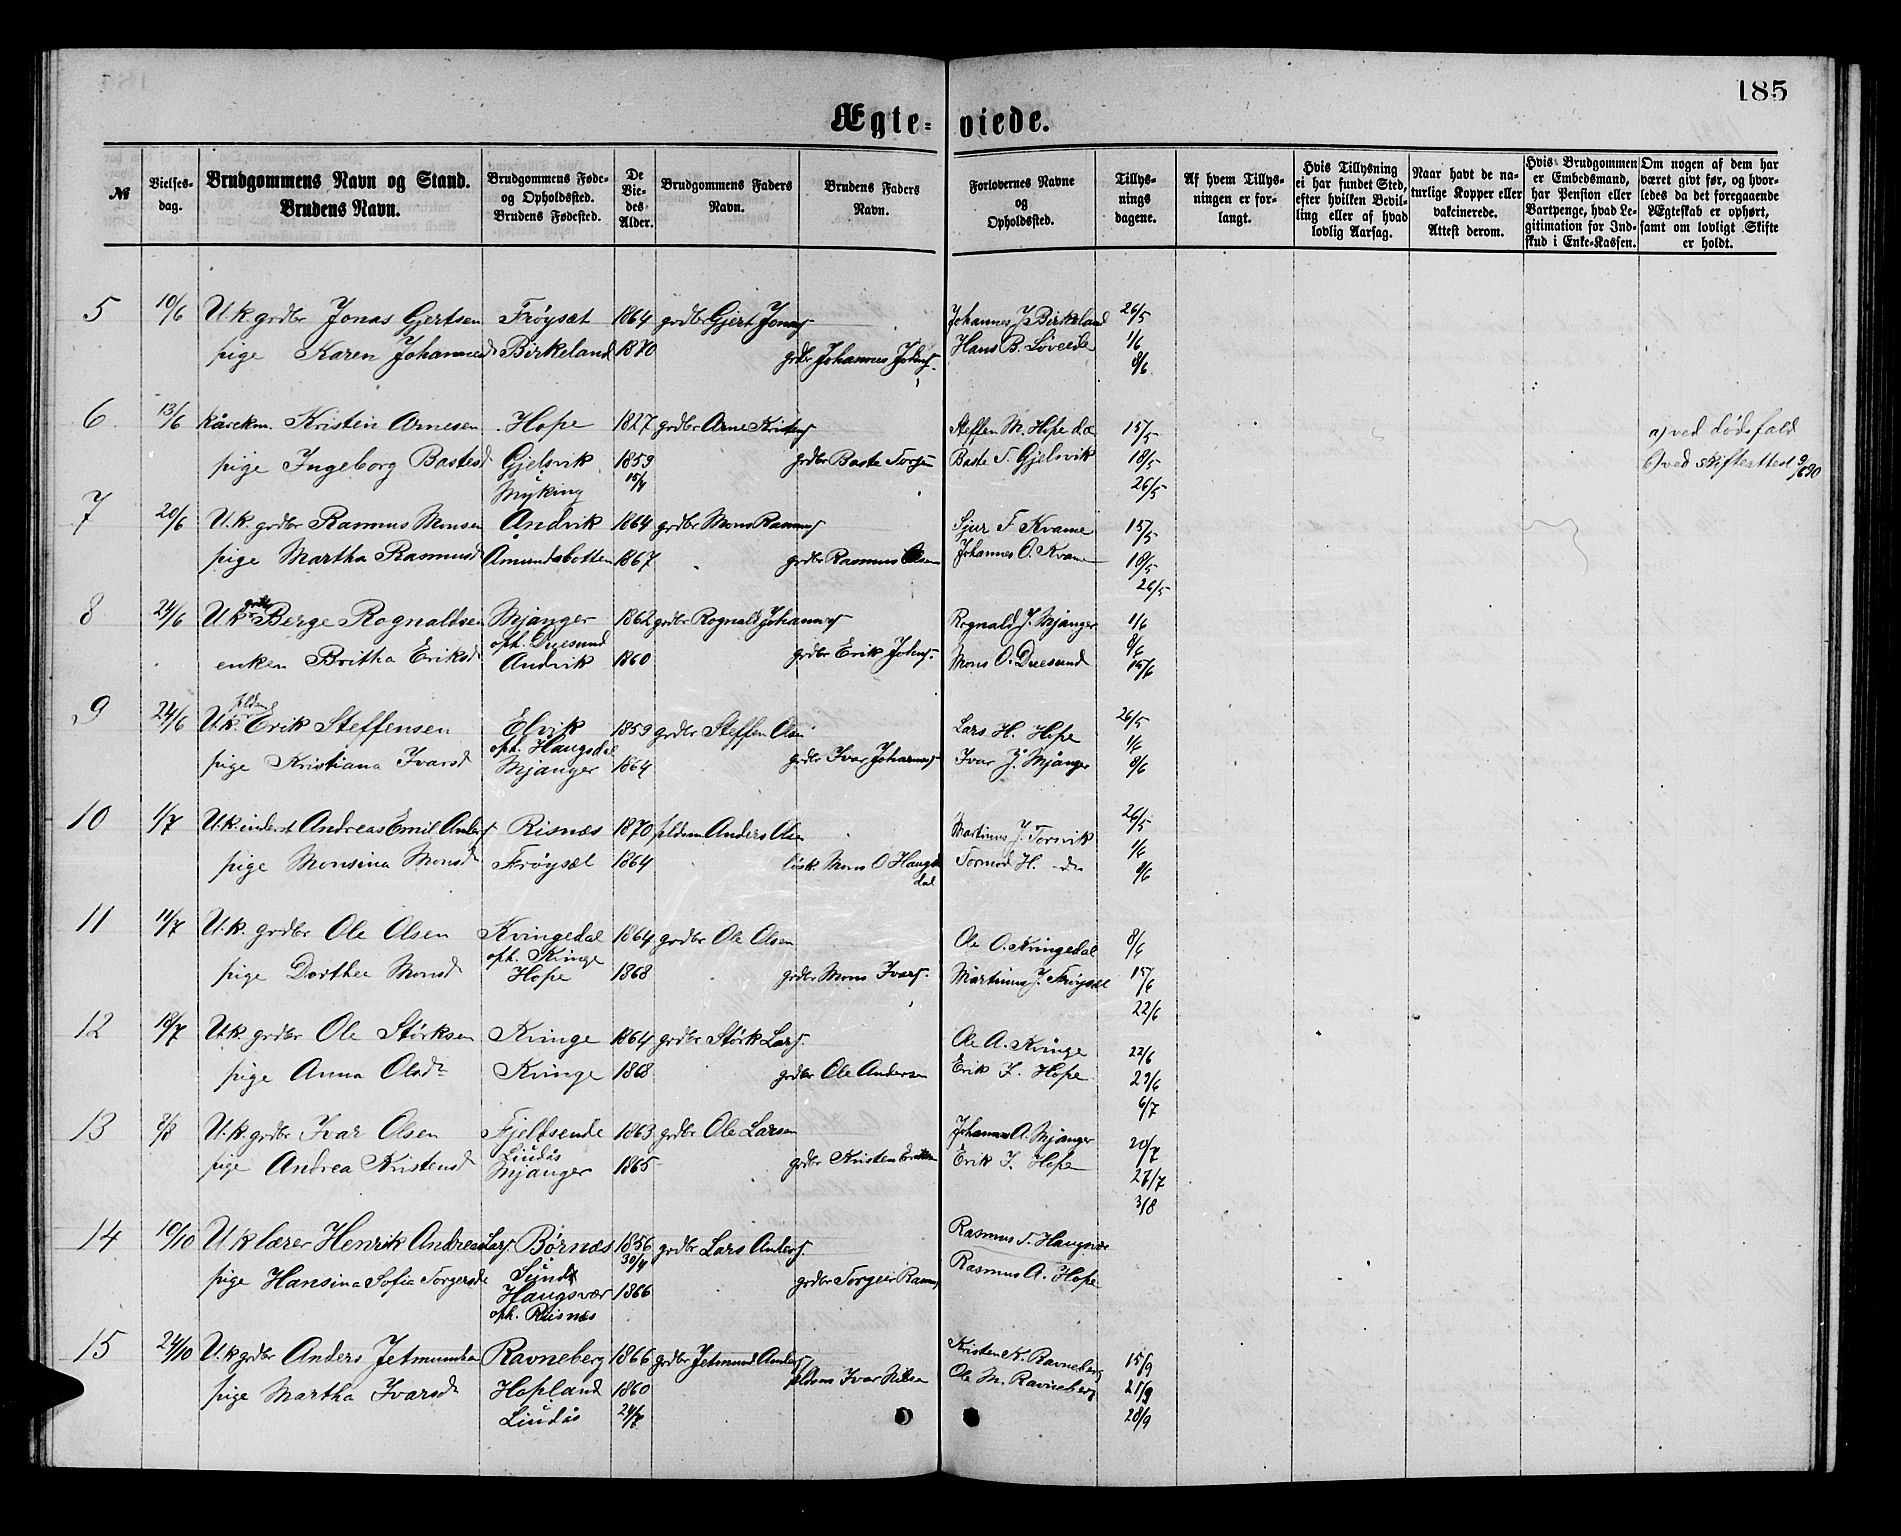 185
Ægte= viede.
№
Vielses-
dag.
Brudgommens Navn og Stand.
Brudens Navn.
Brudgommens Føde-
og Opholdssted.
Brudens Fødested.
De
Vie-
des
Alder.
Brudgommens Faders
Navn.
Brudens Faders
Navn.
Forlovernes Navne
og
Opholdssted.
Tillys-
nings
dagene.
Af hvem Tillys-
ningen er for-
langt.
Hvis Tillysning
ei har fundet Sted,
efter hvilken Bevil-
ling eller af hvad
lovlig Aarsag.
Naar havt de na-
turlige Kopper eller
vakcinerede.
Attest derom.
Hvis Brudgommen
er Embedsmand,
har Pension eller
Vartpenge, hvad Le-
gitimation for Ind-
skud i Enke-Kassen.
Om nogen af dem har
været givt før, og hvor-
ledes da det foregaaende
Ægteskab er ophørt,
samt om lovligt Skifte
er holdt.
5 10/6 U.k. grdbr Jonas Gjertsen Frøysæt 1864 grdbr Gjert Jonas Johannes J. Birkeland 26/5
pige Karen Johannesd Birkeland 1870 grdbr Johannes Johns. Hans B. 1/6
8/6
6 13/6 kårekm. Kristen Arnesen Hope 1827 grdbr Arne Kristens Steffen M. Hope 15/5 a) ved dødsfald
pige Ingeborg Bastesd Gjelsvik 1859 grdbr Baste Baste T. Gjelsvik 18/5 b) ved skifteattest 9/6 90
Myking 15/4 26/5
7 20/6 U.k. grdbr Rasmus Monsen Andvik 1864 grdbr Mons Rasmus Sjur F Kvame 15/5
pige Martha Rasmusd Åmundsbotten 1867 grdbr Rasmus Olsen Johannes O. Kvame 18/5
26/5
8 24/6 U.k. grdbr Berge Rognaldsen Mjanger 1862 grdbr Rognald Johannes Rognald J. Mjanger 1/6
oph. Duesund 8/6
enken Britha Eriksd Andvik 1860 grdbr Erik Johns. Mons O. Duesund 15/6
9 24/6 U.k. Erik Steffensen Elvik 1859 grdbr Steffen Olsen Lars H. Hope 26/5
oph. Haugsdal 1/6
pige Kristiana Ivarsd Mjanger 1864 grdbr Ivar Johannes Ivar J. Mjånger 8/6
10 1/7 U.k. inderst Andreas Emil Anders Risnæs 1870 pldsm Anders Olsen Martinus J. Torsvik 26/5
1/6
pige Monsina Monsd Frøysæt 1864 Mons O Haugs Tormod H. do 8/6
dal
11 11/7 U.k. grdbr Ole Olsen Kvingedal 1864 grdbr Ole Olsen Ole O. Kvingedal 8/6
oph. Kvinge
pige Dorthea Monsd Hope 1868 grdbr Mons Ivars. Martinus J. Frøysæt 15/6
22/6
12 18/7 U.k. grdbr Ole Størksen Kvinge 1864 grdbr Størk Lars. Ole A. Kvinge 22/6
pige Anna Olsdr Kvinge 1868 grdbr Ole Andersen Erik I. Hope 29/6
6/7
13 U.k. grdbr Ivar Olsen Fjeldsende 1863 grdbr Ole Larsen Johannes A. Mjanger 20/7
Lindås
pige Andrea Kristensd Mjanger 1865 grdbr Kristen Eriksen Erik I. Hope 27/7
3/8
14 10/10 U k lærer Henrik Andreas Lars. Børnæs 1856 grdbr Lars Anders. Rasmus T. Haugsvær
30/4
pige Hansina Sofia Torgersdr Sund grdbr Torgeir Rasmus Rasmus A. Hope
Haugsvær 1866
oph. Risnæs
15 24/10 U.k grdbr Anders Jetmundsen Ravneberg 1866 grdbr Jetmund Anders Kristen K. Ravneberg 15/9
pige Martha Ivarsdr Hopland 1860 pldsm Ivar Nilsen Ole M. Ravneberg 21/9
Lindås 24/7 28/9